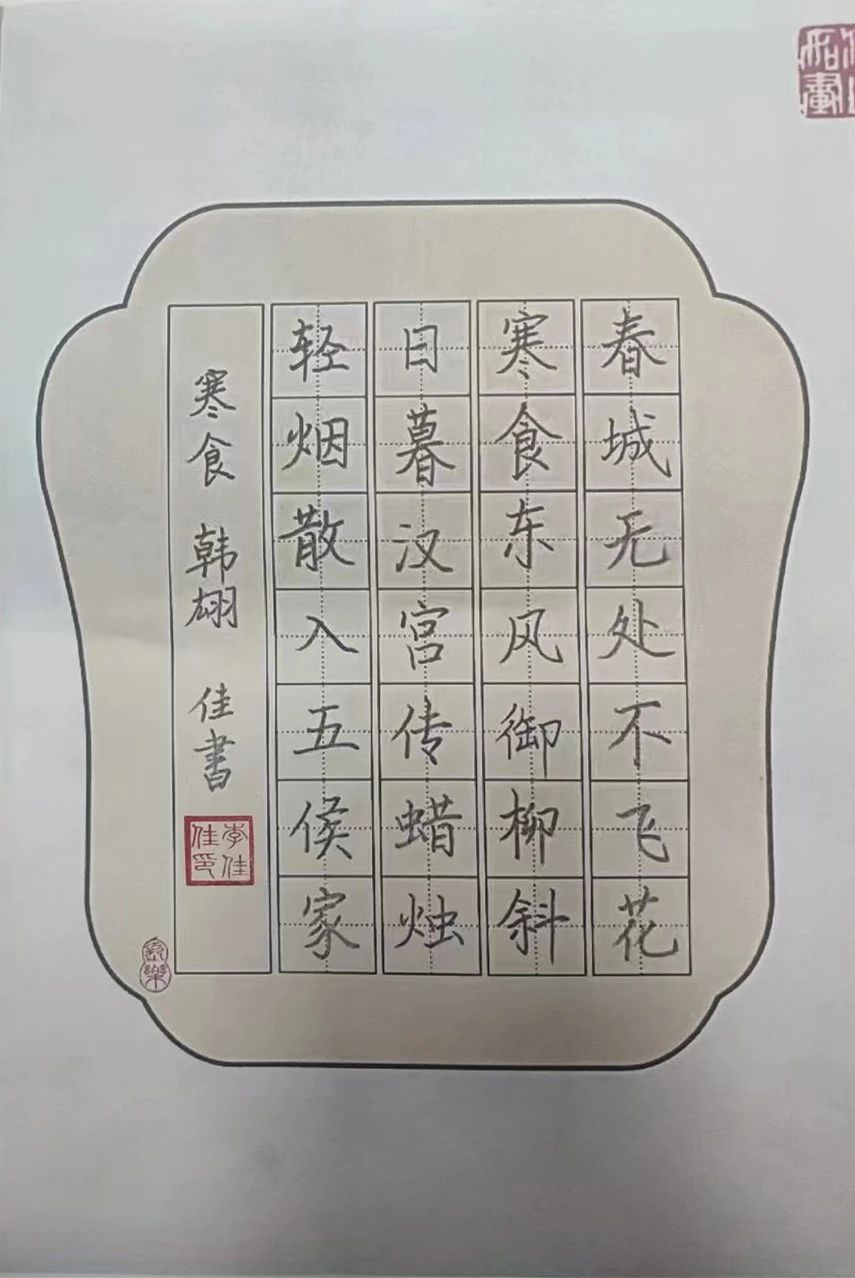 春城无处不飞花
寒食东风御柳斜
日暮汉宫传蜡烛
轻烟散入五侯家
寒食 韩翃 佳书
李佳佳印